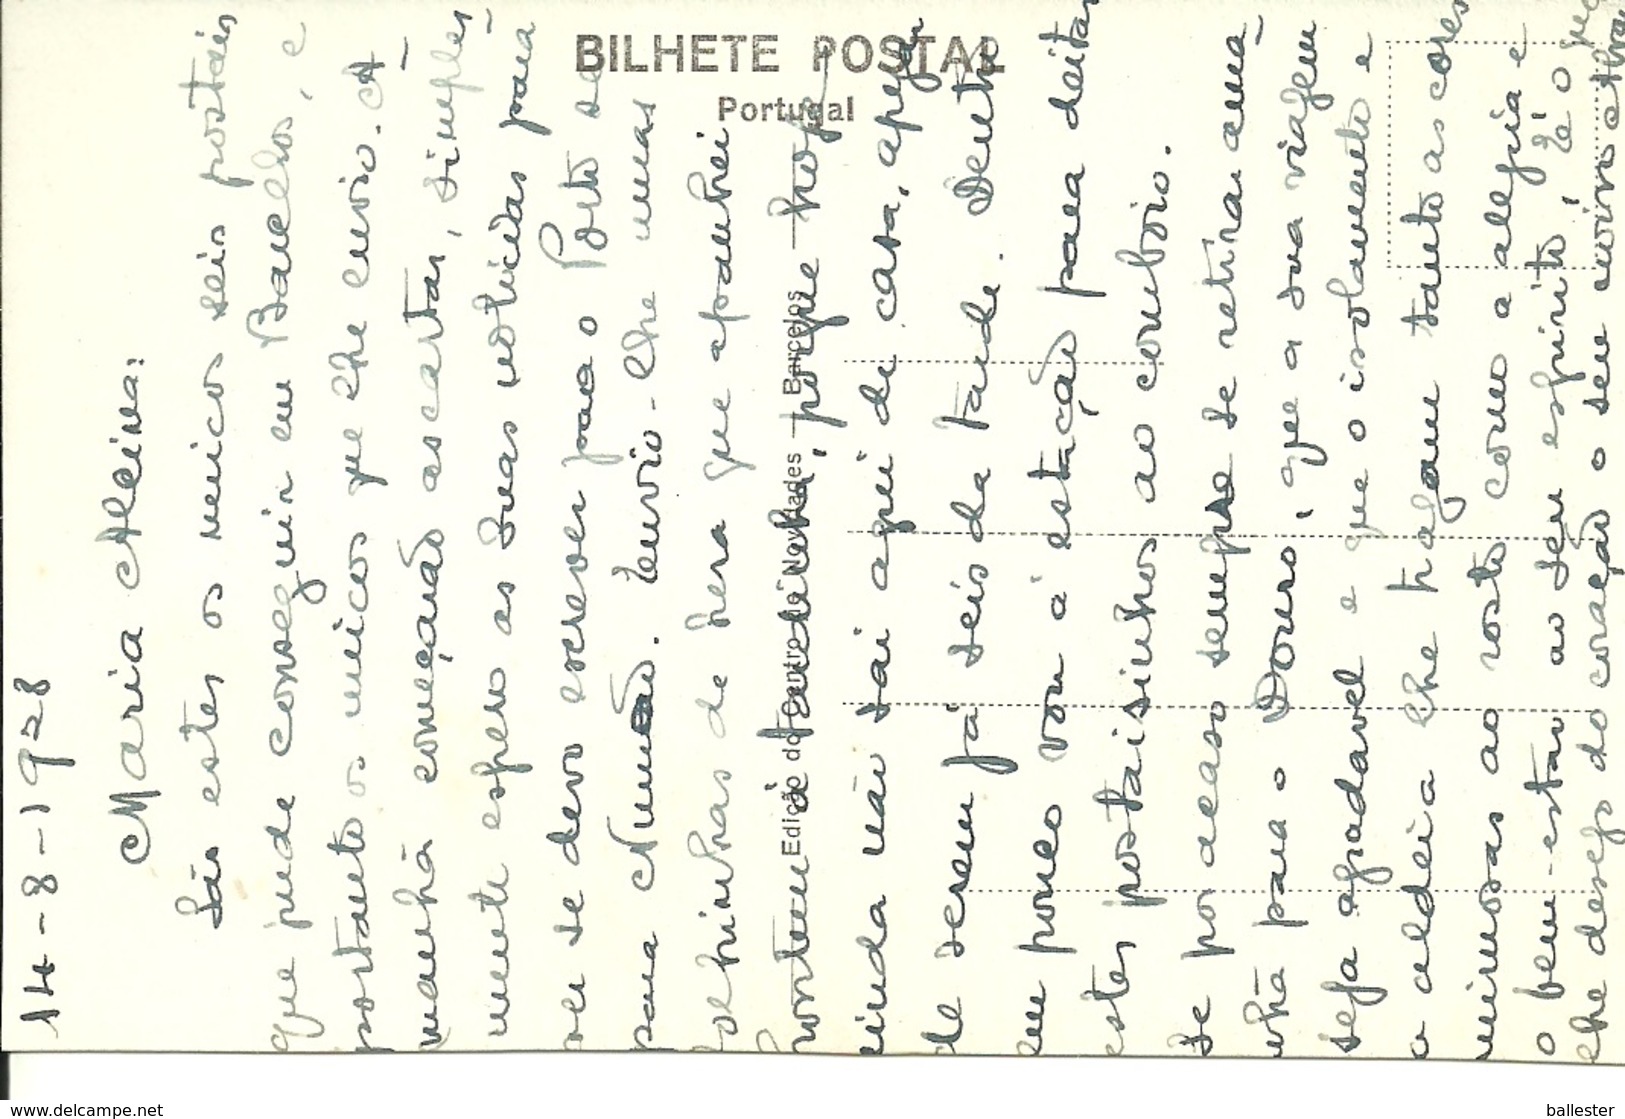 14-8-1928
Maria Alcina:
São estes os unicos seis postais
que pude conseguir em Barcelos, e
portanto os unicos que lhe envio. A-
manhã começarão as cartas, simples-
mente espero as suas noticias para
ver se devo escrever para o Porto se
para Numão. Envio-lhe umas
folhinhas de hera que apanhei
hontem à tardinha, porque hoje
ainda não saí aqui de casa, apezar
de serem já seis da tarde. Dentro
em pouco vou á estação para deitar
estes postaisinhos ao comboio.
Se por acaso sempre se retirar ama-
nhã para o Douro, que a sua viagem
seja agradavel e que o isolamento e
a aldeia lhe tragam tanto as cores
mimosas ao rosto como a alegria e
o bem-estar ao seu espirito, é o que
lhe desejo do coração o seu
BILHETE POSTAL
Portugal
Edição do Centro de Novidades - Barcelos
www.delcampe.net
ballester